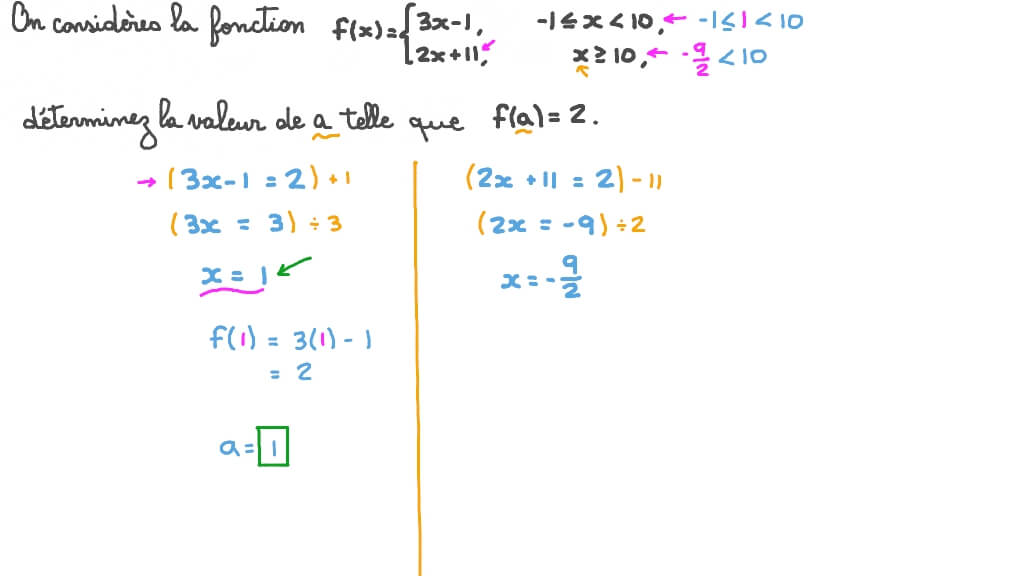 On considères la fonction f(x)={3x-1, -1≤x<10, ← -1≤1<10
2x+11, x≥10, ← -9/2<10
déterminez la valeur de a telle que f(a)=2.
→ (3x-1=2)+1
(3x=3)÷3
x=1
f(1)=3(1)-1
=2
a=1
(2x+11=2)-11
(2x=-9)÷2
x=-9/2